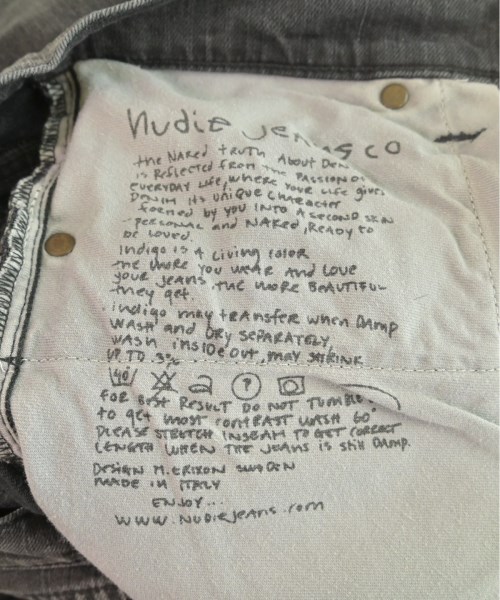 Nudie Jeans co
the NAKED tRUTH About DEN
is REFLECTED from the PASSION OF
EVERYDAY LIFE, WHERE YOUR LIFE gives
DENIM its UNIQUE CHARACTER
formed by you INTO A SECOND SKIN
PERSONAL and NAKED, READY to
BE LOVED.
Indigo IS A LIVING COLOR
the MORE YOU WEAR AND LOVE
YOUR JEANS the MORE BEAUTIFUL
they get.
indigo may tRANSFER when DAMP
WASH and DRY SEPARATELY,
WASH insIDE out, may SHRINK
UP TO 3%
40
?
FOR BEST RESULT DO NOT TUMBLE.
to get most CONTRAST WASH 60°
PLEASE STRETCH INSEAM TO GET CORRECT
LENGTH WHEN THE JEANS is still DAMP.
DESIGN M.ERIXON SWEDEN
MADE IN ITALY
ENJOY...
WWW.NUDIEJEANS.com